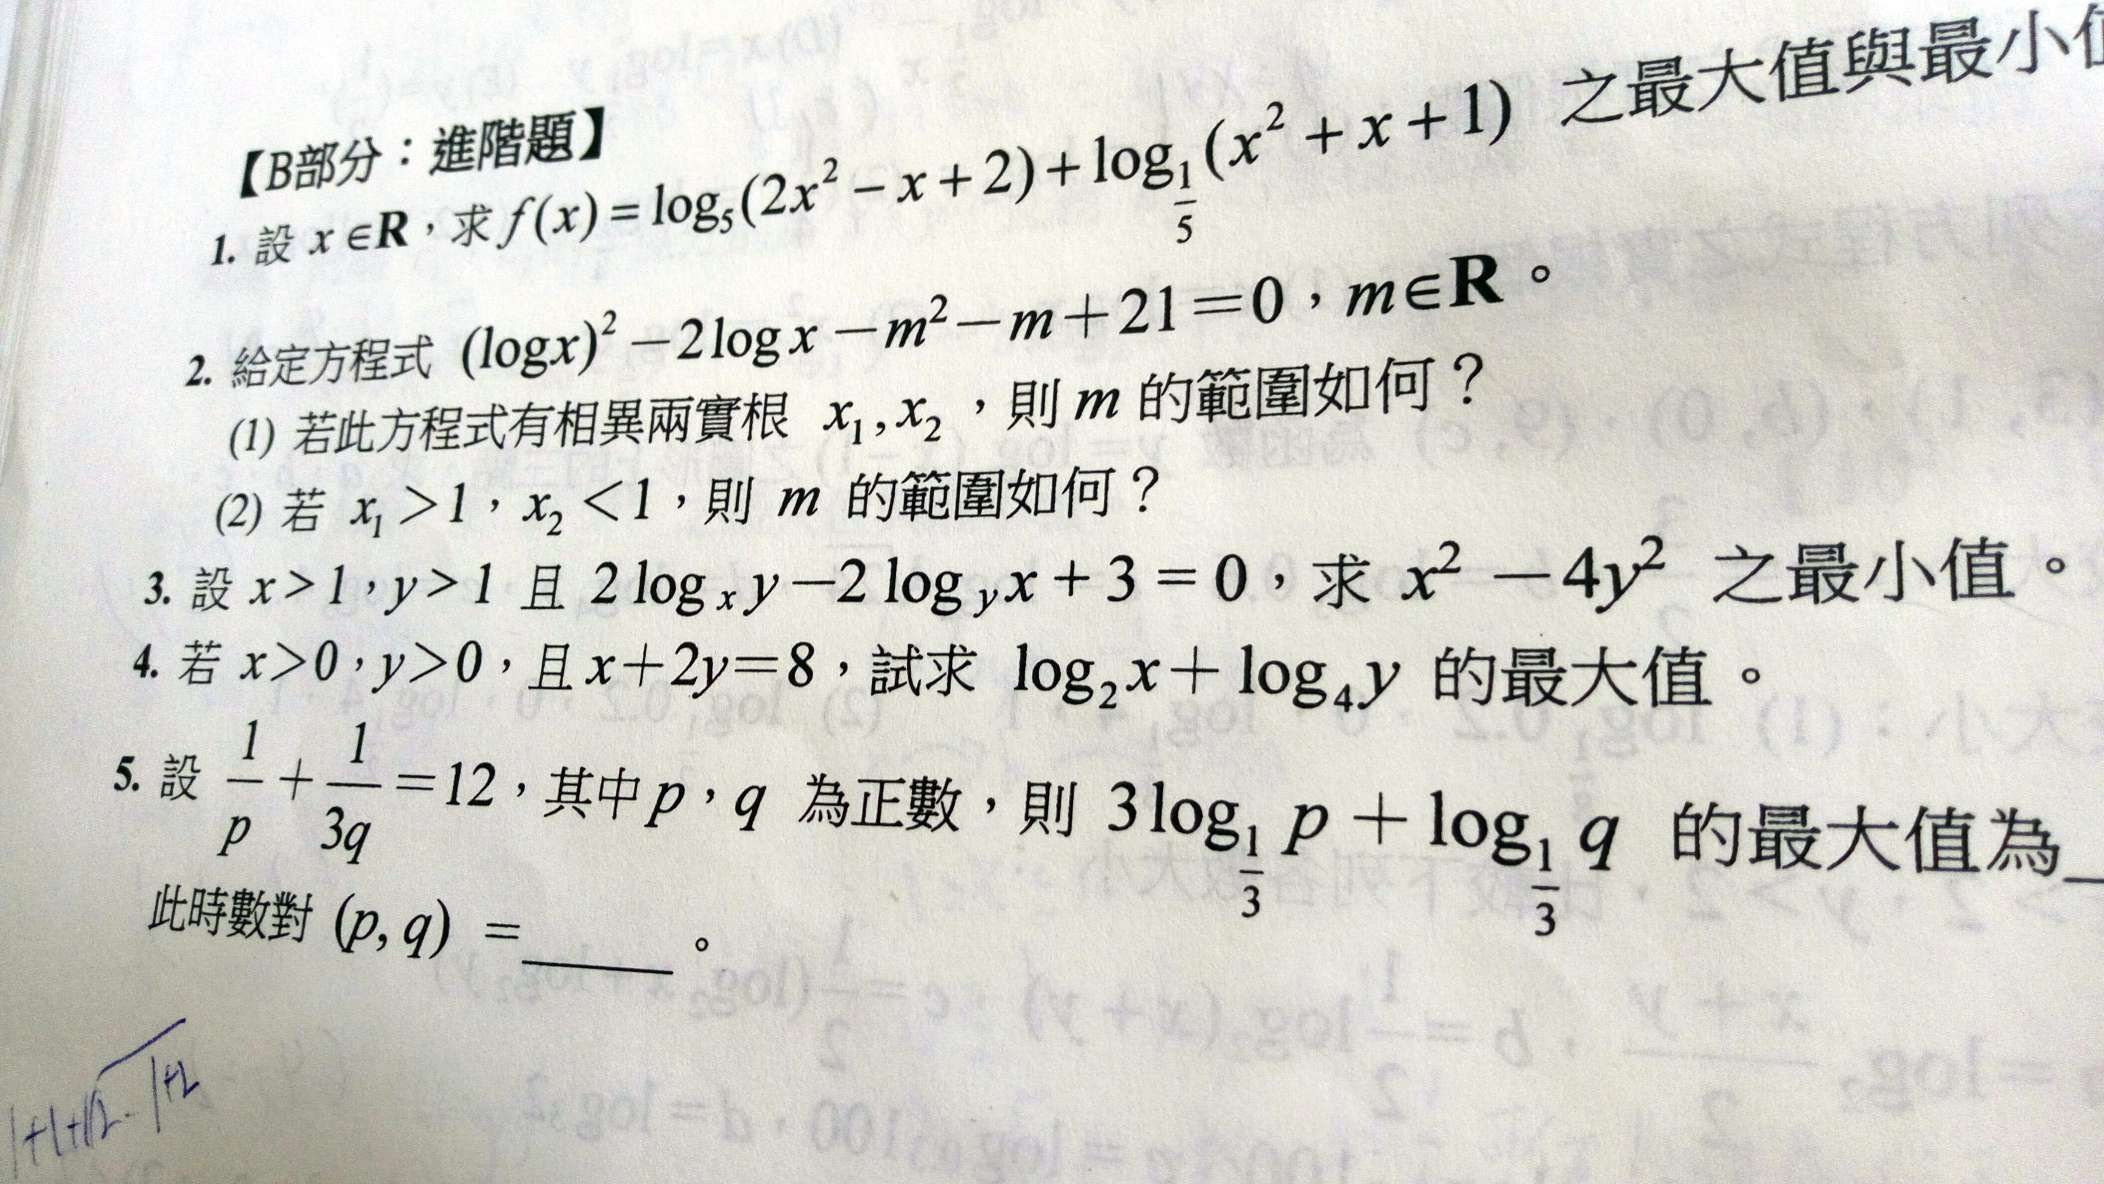 【B部分：進階題】
1. 設 x∈R，求 f(x)=log₅(2x²−x+2)+log_{1/5}(x²+x+1) 之最大值與最小
2. 給定方程式 (logx)²−2logx−m²−m+21=0，m∈R。
(1) 若此方程式有相異兩實根 x₁,x₂，則 m 的範圍如何？
(2) 若 x₁>1，x₂<1，則 m 的範圍如何？
3. 設 x>1，y>1 且 2log_x y−2log_y x+3=0，求 x²−4y² 之最小值。
4. 若 x>0，y>0，且x+2y=8，試求 log₂x+log₄y 的最大值。
5. 設 1/p+1/3q=12，其中p，q 為正數，則 3log_{1/3} p+log_{1/3} q 的最大值為_
此時數對 (p,q) =_____。